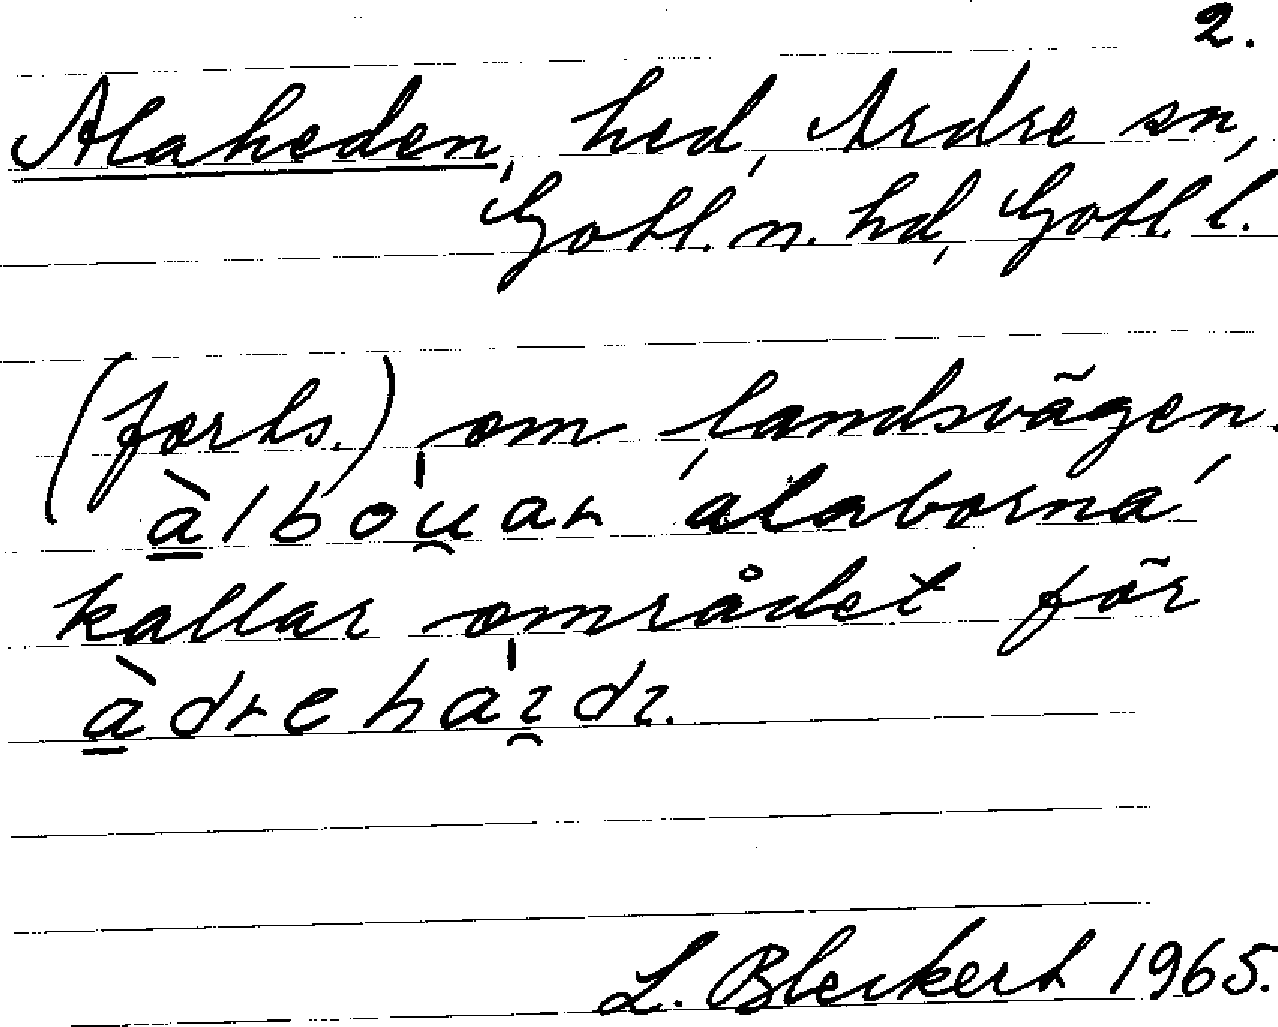 2.
Alaheden, hed, Ardre sn,
Gotl. n. hd, Gotl. l.
(forts.) om landsvägen.
àlbou̯ar 'alaborna'
kallar området för
àdrehaı̯dı.
L. Bleckert 1965.